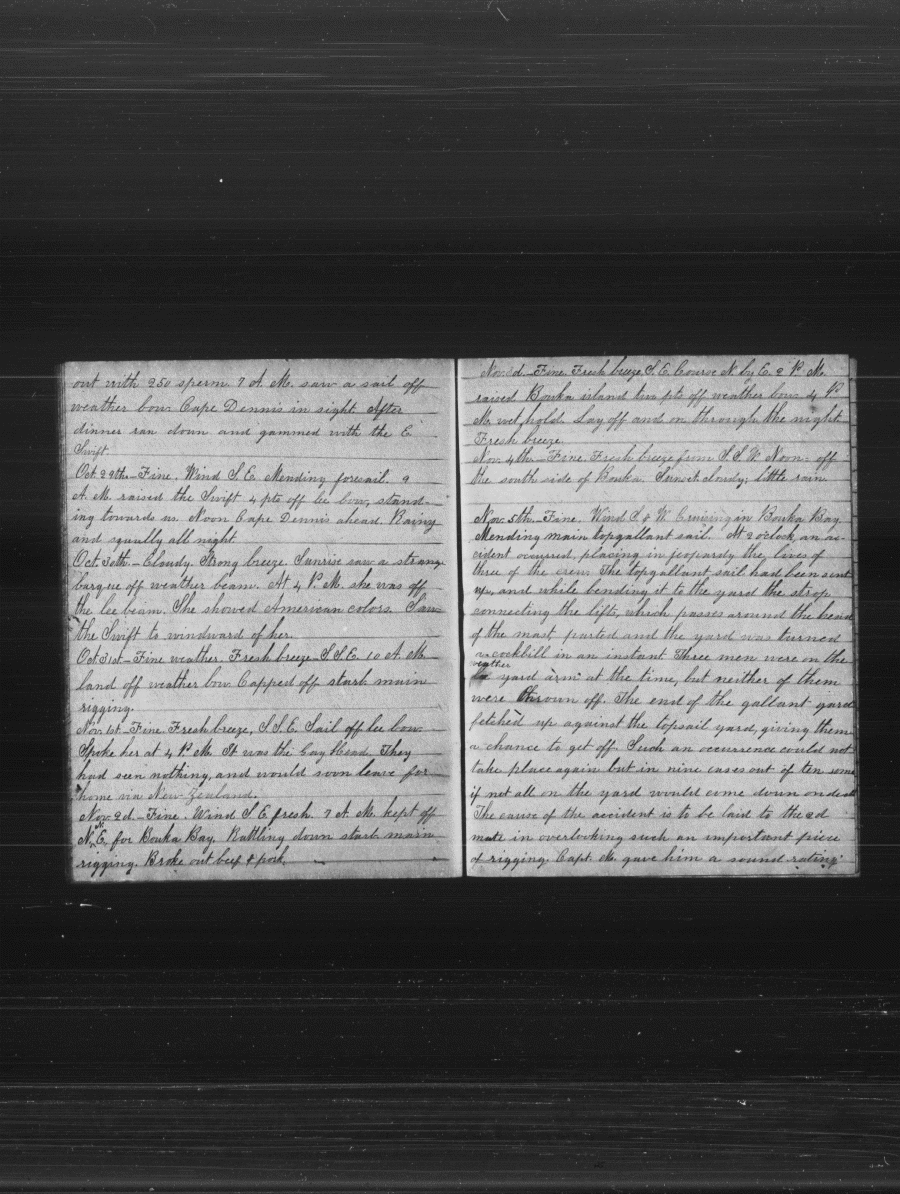 out with 250 sperm. 7 A. M. saw a sail off
weather bow. Cape Dennis in sight. After
dinner ran down and gammed with the E
Swift.
Oct 29th – Fine. Wind S. E. Mending foresail. 9
A. M. raised the Swift 4 pts off lee bow, stand-
ing towards us. Noon Cape Dennis ahead. Rainy
and squally all night
Oct 30th. – Cloudy. Strong breeze. Sunrise saw a strange
barque off weather beam. At 4 P. M. she was off
the lee beam. She showed American colors. Saw
the Swift to windward of her.
Oct 31st – Fine weather. Fresh breeze – S. S. E. 10 A. M.
land off weather bow. Capped off starb main
rigging.
Nov. 1st. Fine. Fresh breeze, S. S. E. Sail off lee bow.
Spoke her at 4 P. M. It was the Gay Head. They
had seen nothing, and would soon leave for
home via New Zealand.
Nov. 2d. – Fine. Wind S. E. fresh. 7 A. M. kept off
N. N. E. for Bouka Bay. Rattling down starb main
rigging. Broke out beef & pork.
Nov. 3d – Fine. Fresh breeze, S. E. Course N. by E. 2 P. M.
raised Bouka island two pts off weather bow. 4 P.
M. wet hold. Lay off and on through the night
Fresh breeze.
Nov. 4th – Fine. Fresh breeze from S. S. W. Noon – off
the south side of Bouka. Sunset cloudy; little rain
Nov. 5th – Fine. Wind S. & W. Cruising in Bouka Bay.
Mending main topgallant sail. At 2 o'clock an ac-
cident occurred, placing in jeopardy the lives of
three of the crew. The topgallant sail had been sent
up, and while bending it to the yard the strop
connecting the lifts, which passes around the head
of the mast parted and the yard was turned
a-cockbill in an instant. Three men were on the
weather
yard arm at the time, but neither of them
were thrown off. The end of the gallant yard
fetched up against the topsail yard, giving them
a chance to get off. Such an occurrence could not
take place again but in nine cases out of ten some
if not all on the yard would come down on deck
The cause of the accident is to be laid to the 2d
mate in overlooking such an important piece
of rigging. Capt. M. gave him a sound "rating"